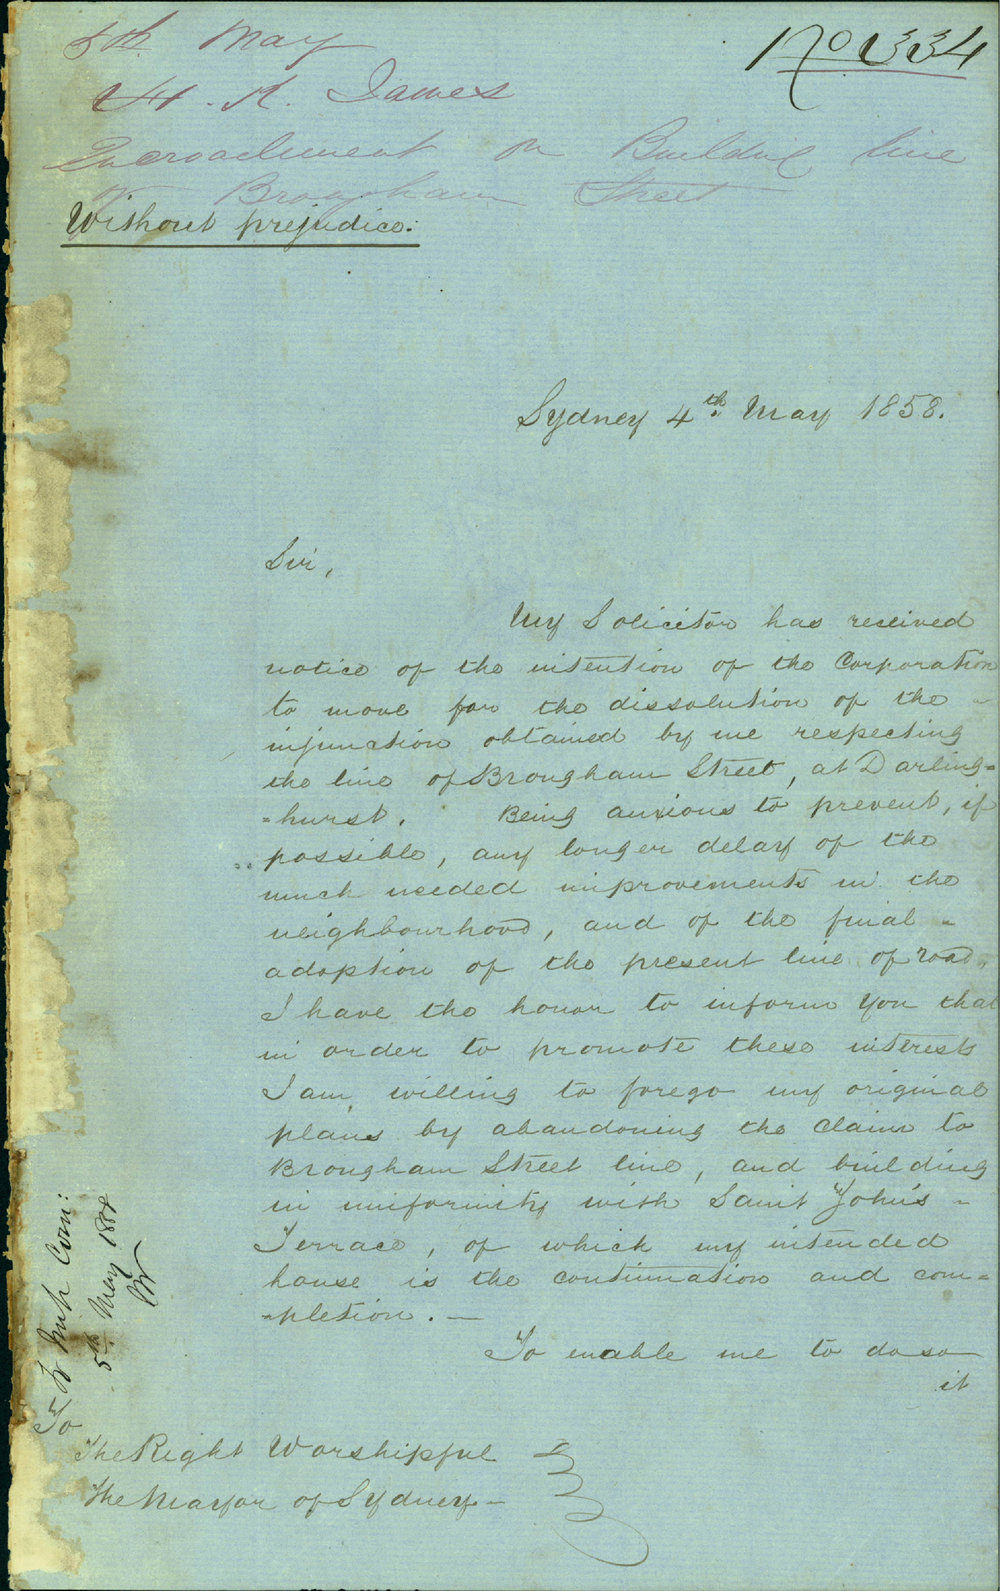 5th May
No 334
H. A. James
Encroachment on Building line
of Brougham Street
Without prejudice:
Sydney 4th May 1858.
Sir,
My Solicitor has received
notice of the intention of the Corporation
to move for the dissolution of the -
injunction obtained by me respecting
the line of Brougham Street, at Darling=
=hurst. Being anxious to prevent, if
possible, any longer delay of the
much needed improvements in the
neighbourhood, and of the final -
adoption of the present line of road,
I have the honor to inform You that
in order to promote these interests
I am willing to forego my original
plans by abandoning the claim to
Brougham Street line, and building
in uniformity with Saint John's -
Terrace, of which my intended
house is the continuation and com=
=pletion. —
To enable me to do so
it
To
The Right Worshipful
The Mayor of Sydney -
Imp Com:
5th May 1858